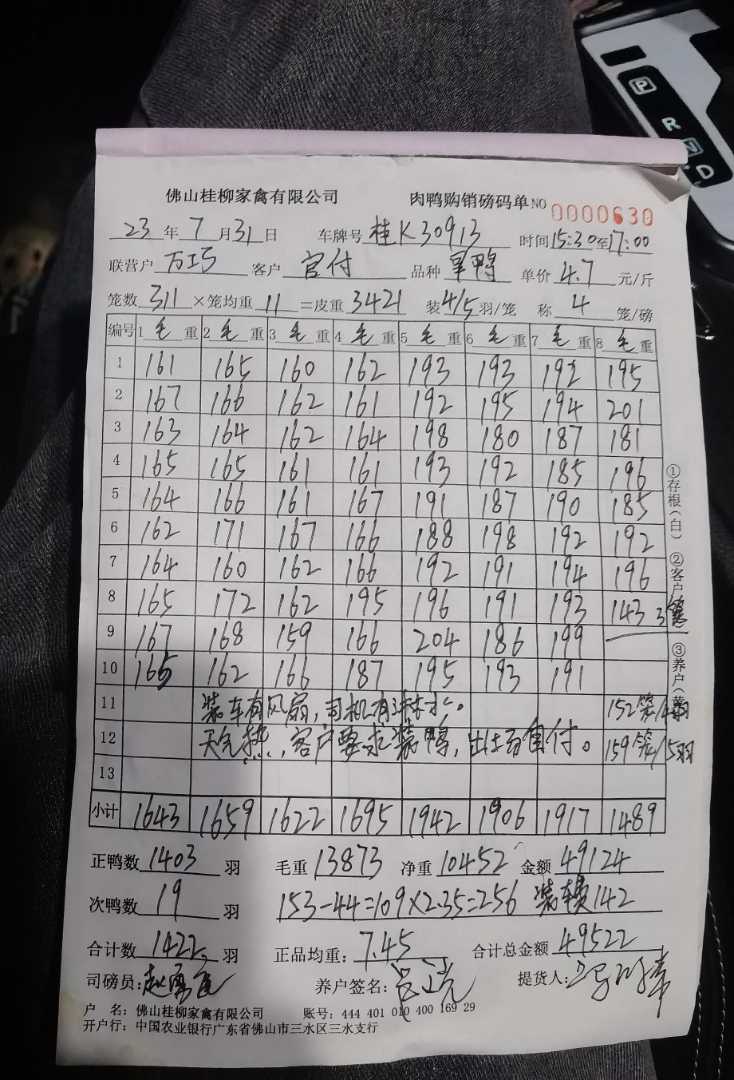 P
R
N
D
佛山桂柳家禽有限公司 肉鸭购销磅码单 NO 0000630
23年7月31日 车牌号 桂K30913 时间15:30至17:00
联营户 万巧 客户 官付 品种 旱鸭 单价 4.7 元/斤
笼数 311 ×笼均重 11 =皮重 3421 装 4/5 羽/笼 称 4 笼/磅
编号 1 毛 重 2 毛 重 3 毛 重 4 毛 重 5 毛 重 6 毛 重 7 毛 重 8 毛 重
1 161 165 160 162 193 193 192 195
2 167 166 162 161 192 195 194 201
3 163 164 162 164 198 180 187 181
4 165 165 161 161 193 192 185 196
5 164 166 161 167 191 187 190 185
6 162 171 167 166 188 198 192 192
7 164 160 162 166 192 191 194 196
8 165 172 162 195 196 191 193 143 3笼
9 167 168 159 166 204 186 199
10 165 162 166 187 195 193 191
11 装车有风扇,司机有淋水。 152笼/4羽
12 天气热,客户要求装鸭,出任何自付。 159笼/5羽
13
小计 1643 1659 1622 1695 1942 1906 1917 1489
正鸭数 1403 羽 毛重 13873 净重 10452 金额 49124
次鸭数 19 羽 153-44=109×2.35=256 装车费142
合计数 1422 羽 正品均重: 7.45 合计总金额 49522
司磅员: 养户签名: 提货人:
户 名: 佛山桂柳家禽有限公司 账号: 444 401 010 400 169 29
开户行: 中国农业银行广东省佛山市三水区三水支行
①存根(白) ②客户 ③养户(黄